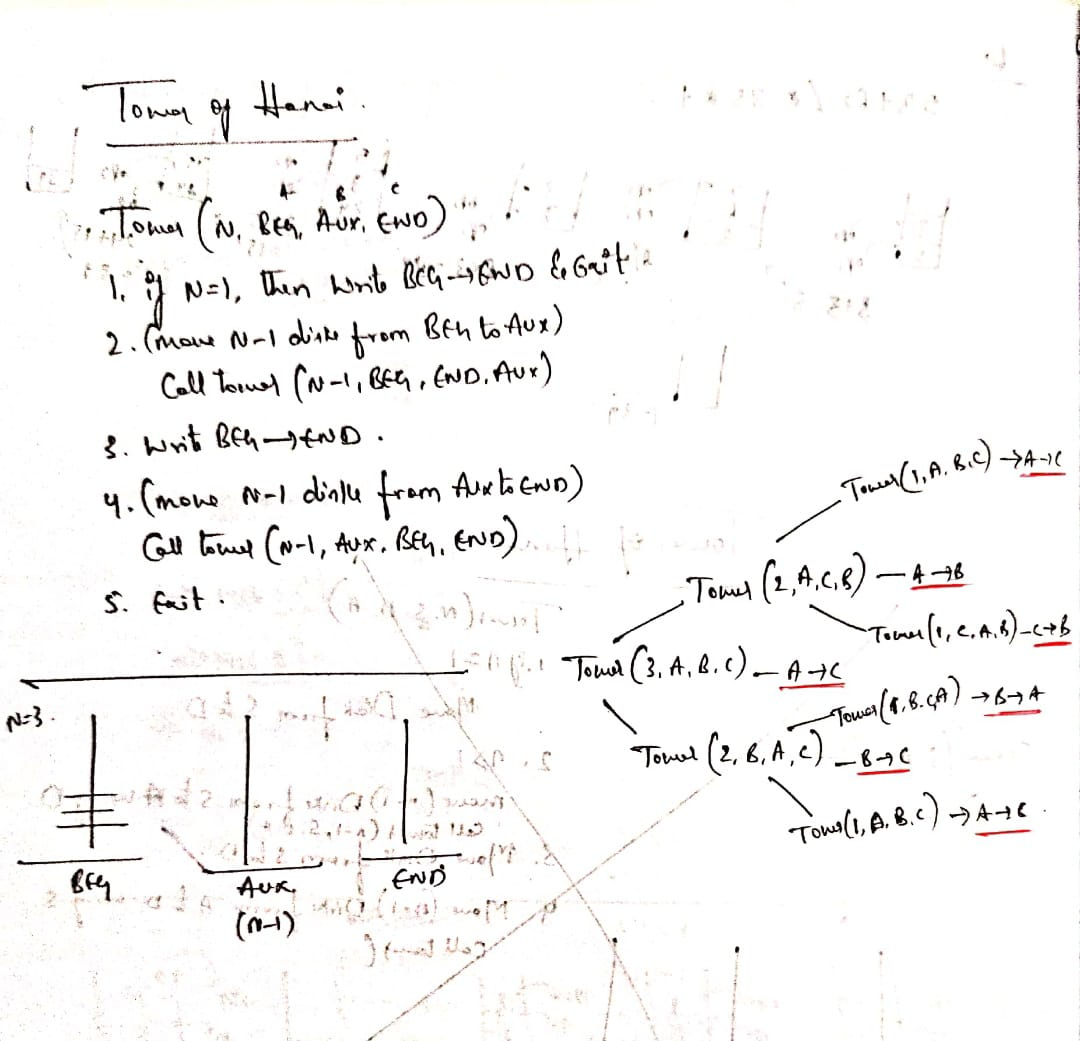 Tower of Hanoi.
A B C
Tower (N, BEG, AUX, END)
1. if N=1, then write BEG→END & Exit
2. (move N-1 disks from BEG to AUX)
Call tower (N-1, BEG, END, AUX)
3. Write BEG→END.
4. (move N-1 disks from AUX to END)
Call tower (N-1, AUX, BEG, END)
5. Exit.
Tower(1, A, B, C) → A→C
Tower (2, A, C, B) – A→B
Tower(1, C, A, B) – C→B
Tower (3, A, B, C) – A→C
Tower(1, B, C, A) → B→A
Tower (2, B, A, C) – B→C
Tower(1, A, B, C) → A→C
N=3.
BEG
AUX
END
(N-1)